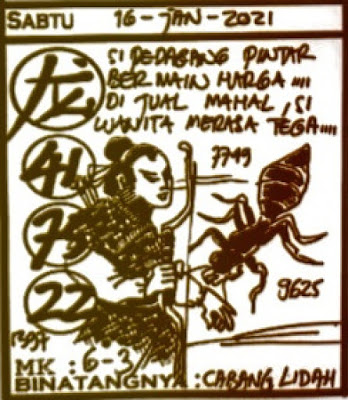 SABTU 16-JAN-2021
龙
SI PEDAGANG PINTAR
BERMAIN HARGA....
DI JUAL MAHAL, SI
WANITA MERASA TEGA....
41
7749
75
22
9625
MK : 6-3
BINATANGNYA : CABANG LIDAH